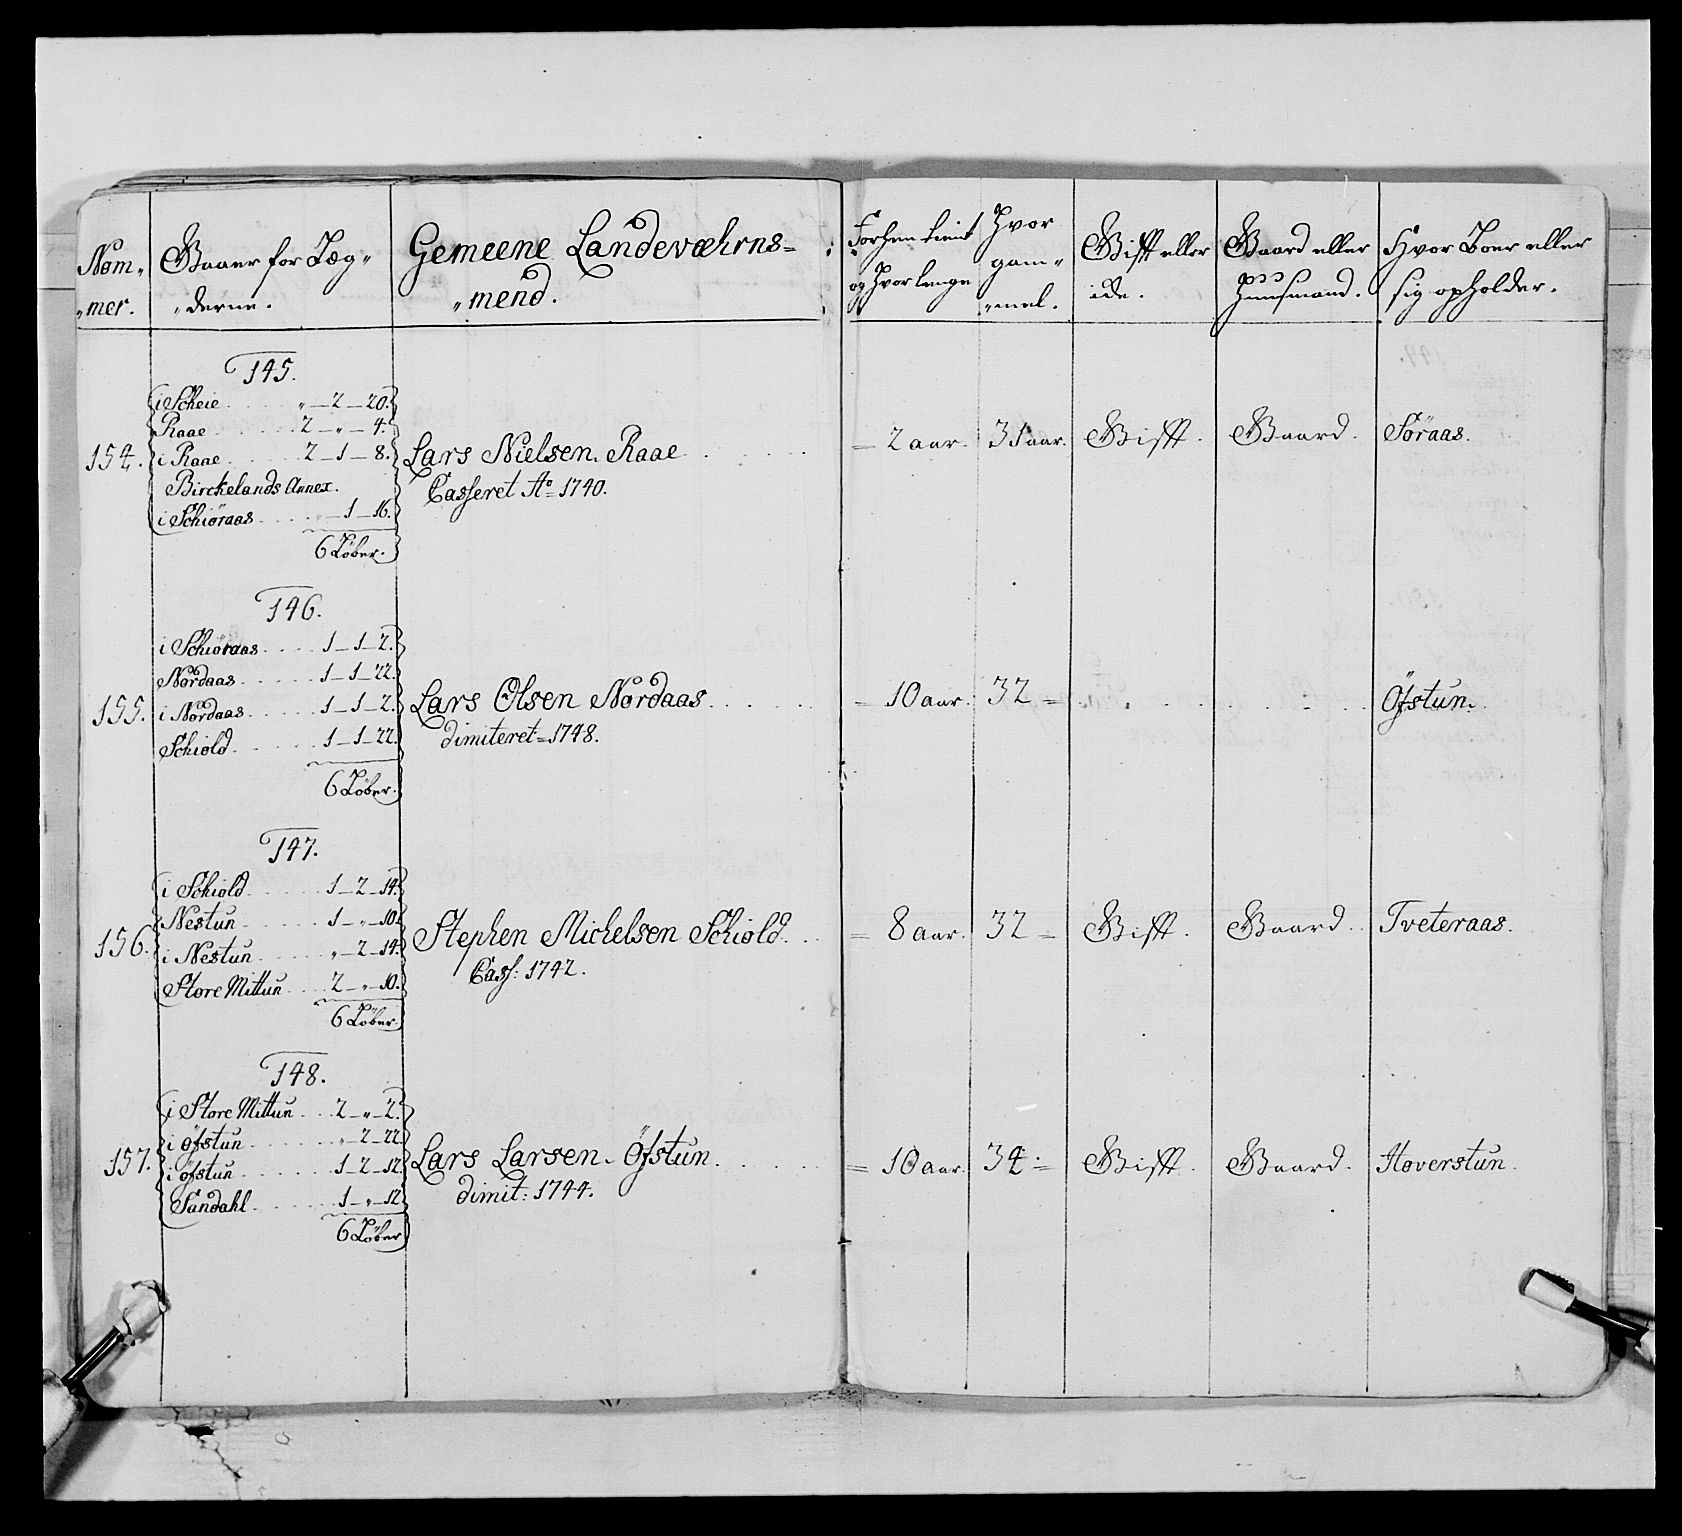 Nom„
„mer.
Gaaer for Læg„
„derne.
Gemeene Landeværns=
„mend.
Forhen tient
og Hvor lenge
Hvor
gam„
„mel.
Gifft eller
ide.
Gaard eller
Huusmand.
Hvor Boer eller
sig opholder.
145.
i Scheie . . . . „ _ 2 _ 20.
Raae . . . . 2 _ „ _ 4.
154. i Raae . . . . 2 _ 1 _ 8. Lars Nielsen Raae . . . = 2 aar. 31 aar. Gifft. Gaard. Söraas.
Birckelands Annex. Casseret Ao= 1740.
i Schiöraas . . . „ _ 1 _ 16.
6 Löber.
146.
i Schiöraas . . . . 1 _ 1 _ 2.
Nordaas . . . . 1 _ 1 _ 22.
155. i Nordaas . . . . 1 _ 1 _ 2. Lars Olsen Nordaas . . . . = 10 aar. 32 = . . . . . . Öfstun.
Schiold . . . . 1 _ 1 _ 22. dimiteret = 1748.
6 Löber.
147.
i Schiold . . . . 1 _ 2 _ 14.
Nestun . . . . 1 _ „ _ 10.
156. i Nestun . . . . „ _ 2 _ 14. Stephen Michelsen Schiold . . . = 8 aar. 32 = Gifft. Gaard. Tveteraas.
Store Mittun . . . 2 _ „ _ 10. Cass: 1742.
6 Löber.
148.
i Store Mittun . . . 2 _ „ _ 2.
i Öfstun . . . . „ _ 2 _ 22.
157. i Öfstun . . . . 1 _ 2 _ 12. Lars Larsen Öfstun . . . . = 10 aar. 34 = Gifft. Gaard. Hoverstun.
Sandahl . . . . 1 _ „ _ 12 dimit: 1744.
6 Löber